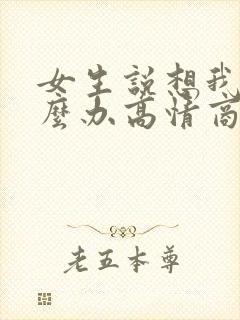 女生説想我
麼办高情商
老五本尊